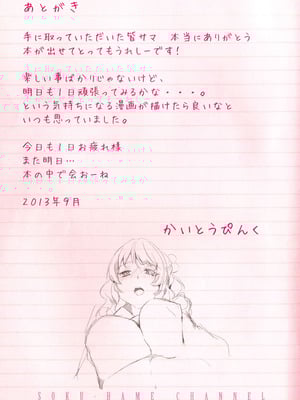 あとがき
手に取っていただいた皆サマ 本当にありがとう
本が出せてとってもうれしーです!
楽しい事ばかりじゃないけど、
明日も1日頑張ってみるかな・・・。
という気持ちになる漫画が描けたら良いなと
いつも思っていました。
今日も1日お疲れ様
また明日…
本の中で会おーね
2013年9月
かいとうぴんく
SOKU-HAME CHANNEL